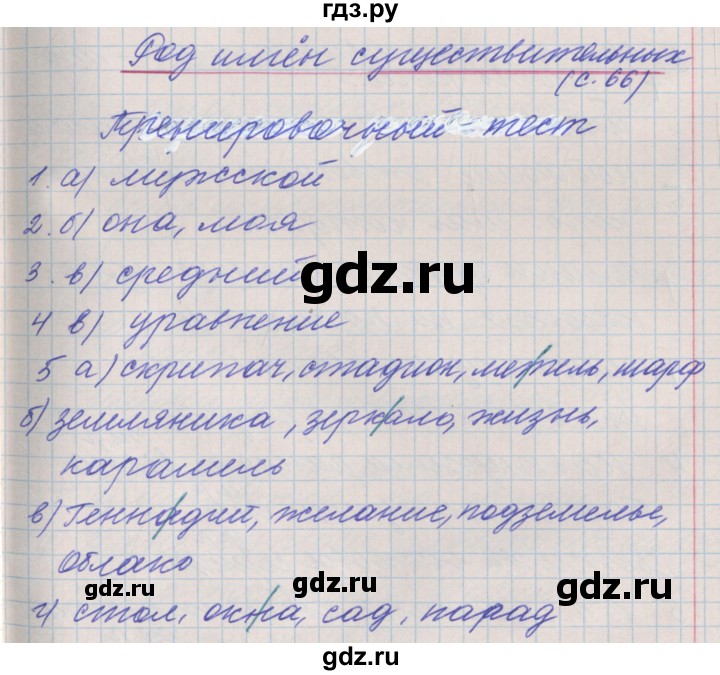 гдз.ру
Род имён существительных
(с. 66)
Тренировочный тест
1. а) мужской
2. б) она, моя
3. в) средний
gdz.ru
4 в) уравнение
5 а) скрипач, стадион, метель, шарф
б) земляника, зеркало, жизнь,
карамель
в) Геннадий, желание, подземелье,
облако
gdz.ru gdz.ru
г) стол, окна, сад, парад
gdz.ru